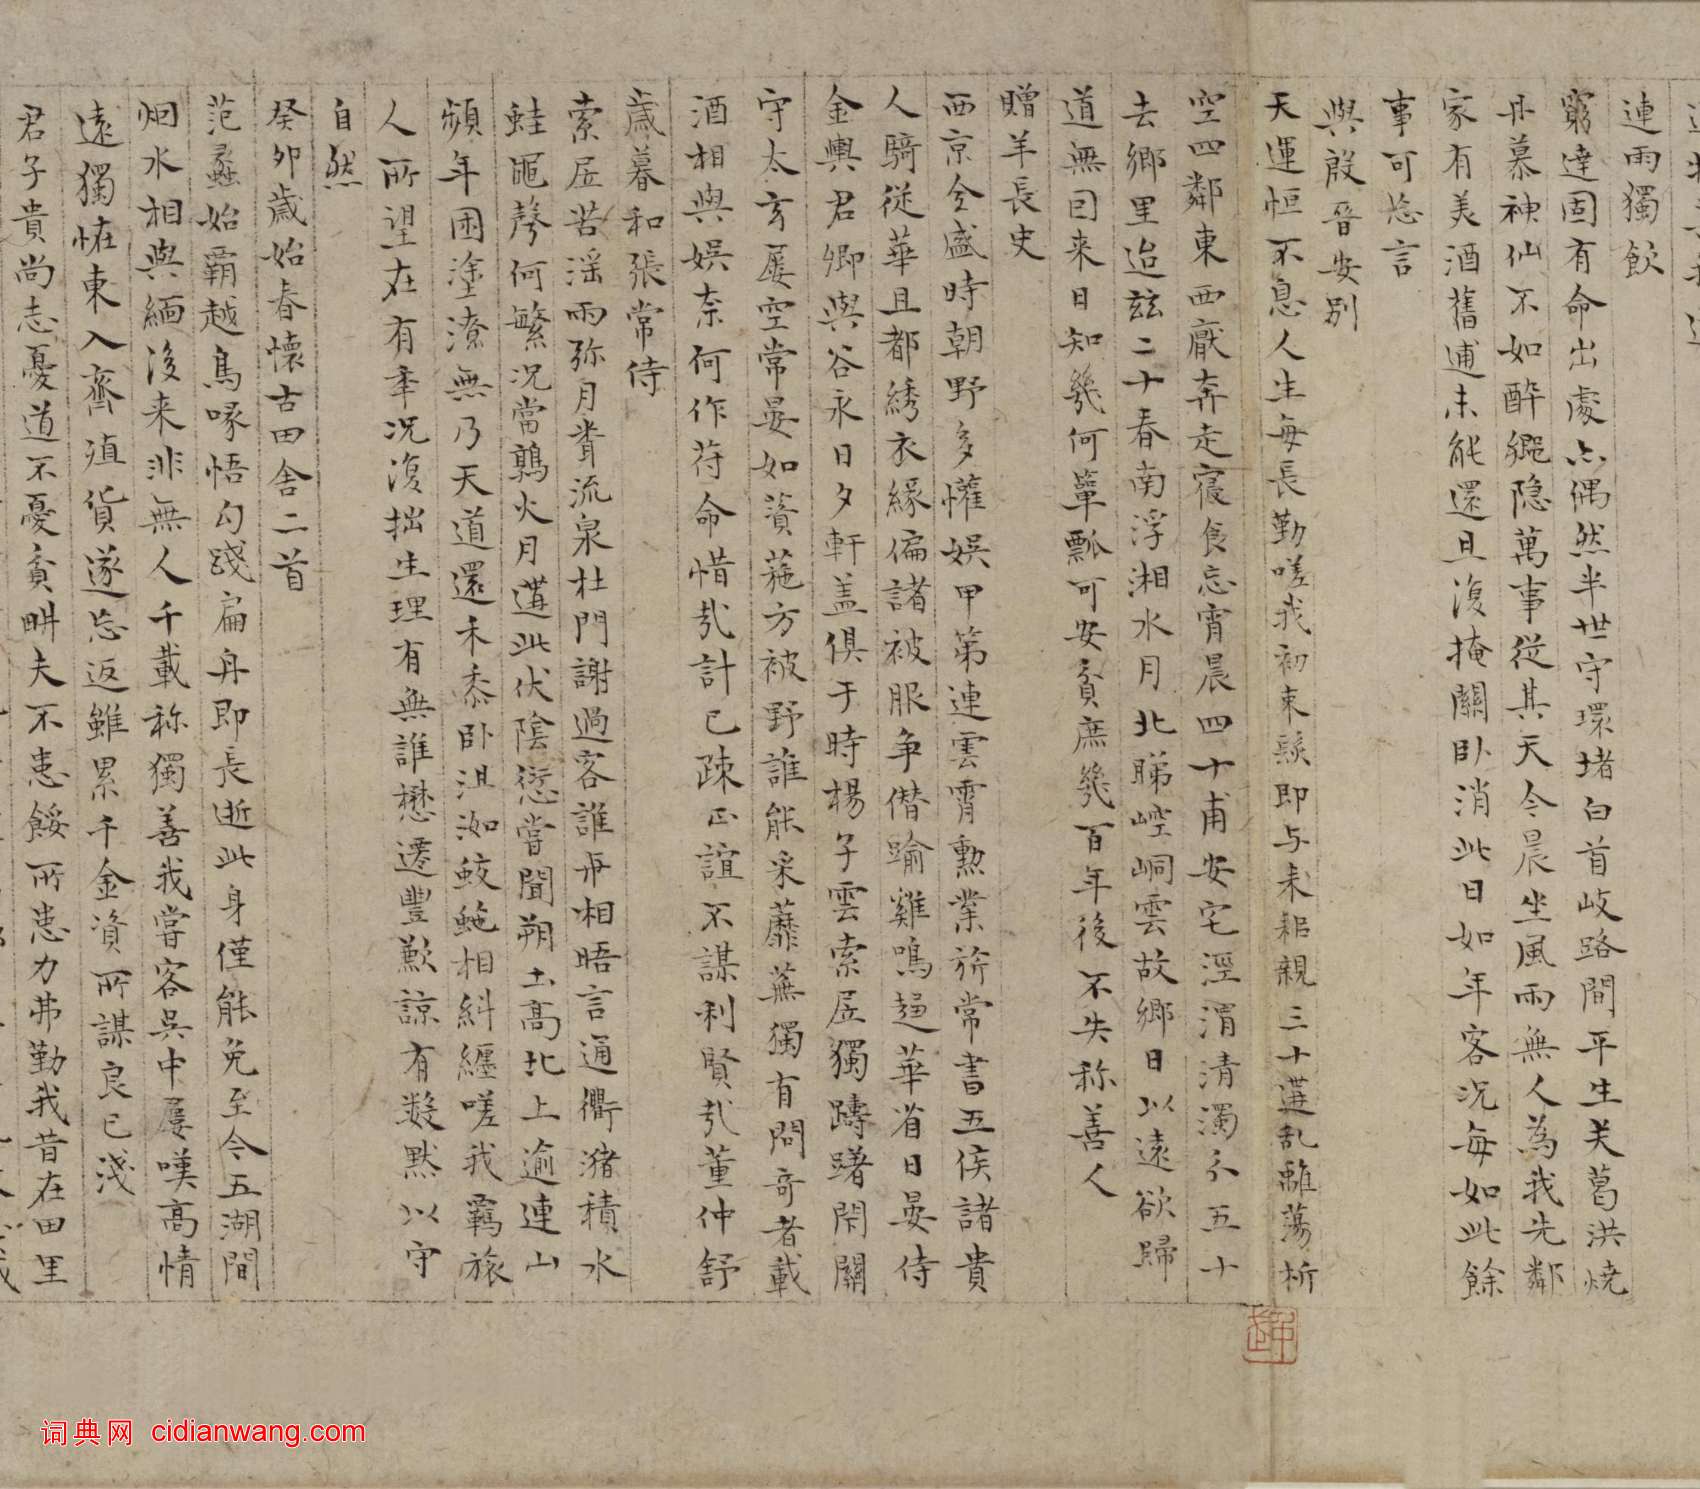 連雨獨飲
窮達固有命出處亦偶然半世守環堵白首岐路間平生关葛洪燒
丹慕神仙不如醉鄉隐萬事從其天今晨坐風雨無人為我先鄰
家有美酒舊逋未能還且復掩關卧消此日如年客況每如此餘
事可忘言
與殷晉安別
天運恒不息人生每長勤嗟我初束髮即与耒耜親三十遘乱離蕩析
空四鄰東西厭奔走寢食忘宵晨四十甫安宅涇渭清濁分五十
去鄉里迨兹二十春南浮湘水月北睇崆峒雲故鄉日以遠欲歸
道無因来日知幾何簞瓢可安貧庶幾百年後不失称善人
贈羊長史
西京全盛時朝野多懽娱甲第連雲霄勲業旂常書五侯諸貴
人騎從華且都綉衣緣偏諸被服争僭踰雞鳴趋華省日晏侍
金輿君卿與谷永日夕軒盖俱于時楊子雲索居獨躊躇閇關
守太玄屢空常晏如薋葹方被野誰能采蘼蕪獨有問奇者載
酒相與娱奈何作苻命惜哉計已疎正誼不謀利賢哉董仲舒
歳暮和張常侍
索居苦淫雨弥月潰流泉杜門謝過客誰再相晤言通衢潴積水
蛙黽聲何繁況當鶉火月遘此伏陰愆嘗聞朔土高北上逾連山
頻年困塗潦無乃天道還禾黍卧沮洳蛟鮀相糾纏嗟我羈旅
人所望在有年況復拙生理有無誰懋遷豐歉諒有数黙以守
自然
癸卯歳始春懐古田舎二首
范蠡始霸越鳥喙悟勾踐扁舟即長逝此身僅能免至今五湖間
烟水相與緬後来非無人千載称獨善我嘗客吴中屢嘆髙情
遠獨恠東入齊殖貨遂忘返雖累千金資所謀良已淺
君子貴尚志憂道不憂貧畊夫不患餒所患力弗勤我昔在田里
词典网 cidianwang.com